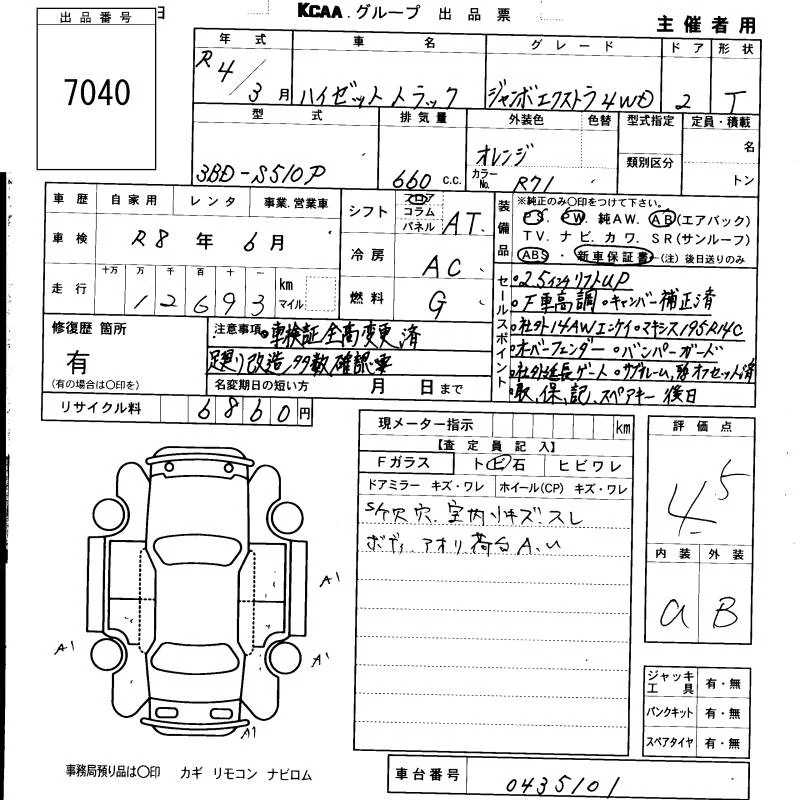 出品番号
日
KCAA.グループ 出品票
主催者用
7040
年式 車名 グレード ドア 形状
R4/3月 ハイゼットトラック ジャンボエクストラ4WD 2 T
型式 排気量 外装色 色替 型式指定 定員・積載
3BD-S510P 660 c.c. オレンジ 類別区分 名
カラーNo. R71 トン
車歴 自家用 レンタ 事業.営業車
シフト フロア コラム パネル AT
装備品 ※純正のみ〇印をつけて下さい。
PS PW 純AW. AB (エアバック)
車検 R8年6月
TV. ナビ. カワ. SR (サンルーフ)
冷房 AC
ABS・新車保証書 (注) 後日送りのみ
走行 十万 万 千 百 十 一
12693 km マイル
燃料 G
セールスポイント
・2.5インチリフトUP
・下車高調・キャンバー補正済
・社外14AWエンケイ・マキシス195R14C
・オーバーフェンダー・バンパーガード
・社外延長ゲート・サブフレーム, オフセット済
・取,保,記,スペアキー後日
修復歴 箇所
有
(有の場合は〇印を)
注意事項 ・車検証全高変更済
改造多数確認要
名変期日の短い方 月 日まで
リサイクル料 6860円
現メーター指示 km
【査定員記入】
Fガラス ト ビ 石 ヒビワレ
ドアミラー キズ・ワレ ホイール(CP) キズ・ワレ
S/ケ穴穴.室内リキズ.スレ
ボディ.アオリ荷台A.U
評価点
4.5
内装 外装
a B
A1
A1
A1
A1
ジャッキ工具 有・無
パンクキット 有・無
スペアタイヤ 有・無
事務局預り品は〇印 カギ リモコン ナビロム
車台番号 0435101